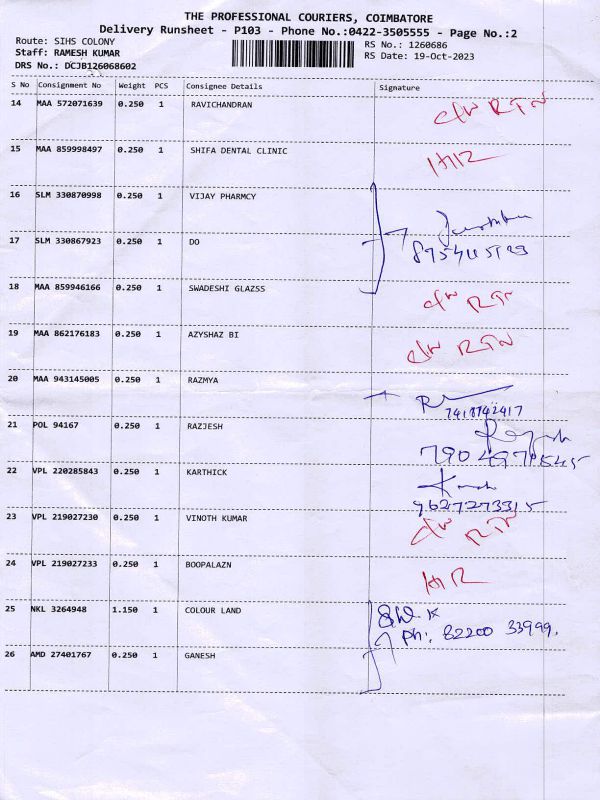 THE PROFESSIONAL COURIERS, COIMBATORE
Delivery Runsheet - P103 - Phone No.:0422-3505555 - Page No.:2
Route: SIHS COLONY
RS No.: 1260686
Staff: RAMESH KUMAR
RS Date: 19-Oct-2023
DRS No.: DCJB126068602
S No Consignment No Weight PCS Consignee Details Signature
14 MAA 572071639 0.250 1 RAVICHANDRAN C/W RTN
15 MAA 859998497 0.250 1 SHIFA DENTAL CLINIC
16 SLM 330870998 0.250 1 VIJAY PHARMCY
17 SLM 330867923 0.250 1 DO
18 MAA 859946166 0.250 1 SWADESHI GLAZSS C/W RTN
19 MAA 862176183 0.250 1 AZYSHAZ BI C/W RTN
20 MAA 943145005 0.250 1 RAZMYA
7418742417
21 POL 94167 0.250 1 RAZJESH
22 VPL 220285843 0.250 1 KARTHICK
9627273315
23 VPL 219027230 0.250 1 VINOTH KUMAR C/W RTN
24 VPL 219027233 0.250 1 BOOPALAZN
25 NKL 3264948 1.150 1 COLOUR LAND
Ph: 82200 33999.
26 AMD 27401767 0.250 1 GANESH